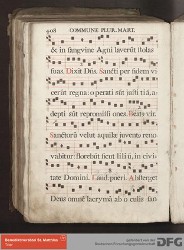 408 COMMUNE PLUR. MART.
& in sanguine Agni laverūt stolas
suas. Dixit Dñs. Sancti per fidem vi
cerūt regna: operati sūt justitiā, a-
depti sūt repromissiones. Beatus vir.
Sanctorū velut aquilæ juventus reno
vabitur: florebūt sicut liliū, in civi
tate Domini. Laud. pueri. Absterget
Deus omnē lacrymā ab oculis san
DFG